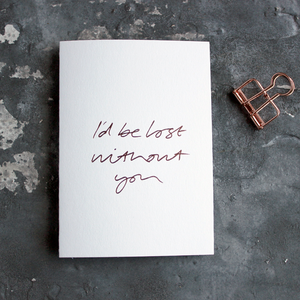 I'd be lost
without
you